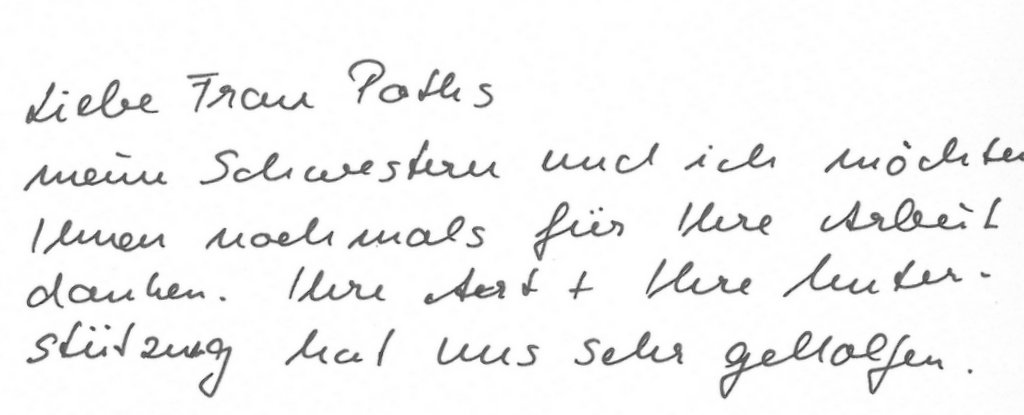 Liebe Frau Paths
meine Schwestern und ich möchten
Ihnen nochmals für Ihre Arbeit
danken. Ihre Art + Ihre Unter-
stützung hat uns sehr geholfen.